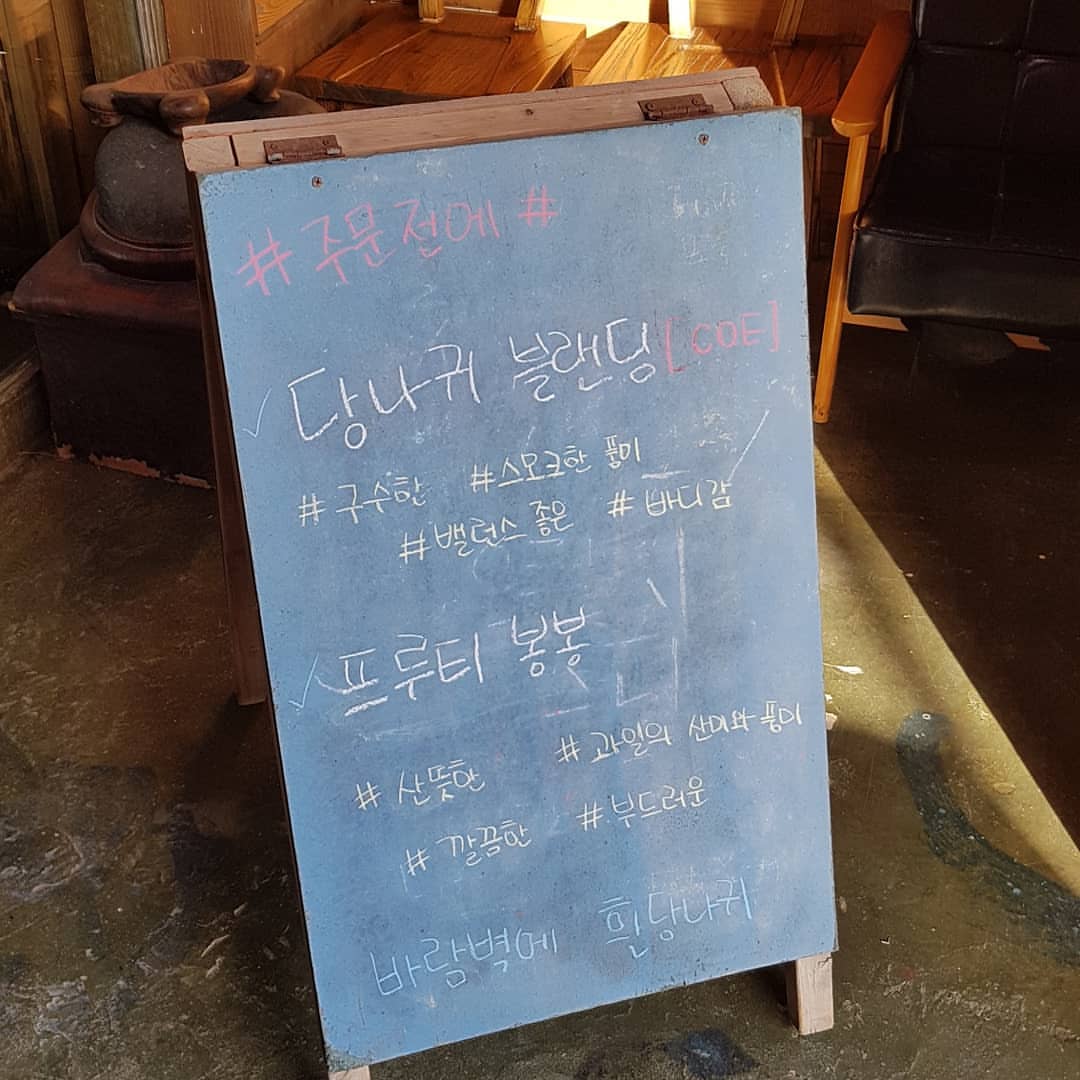 #주문전에#
당나귀 블랜딩[COE]
#구수한 #스모크한 풍미
#밸런스 좋은 #바디감
프루티 봉봉
#산뜻한 #과일의 산미와 풍미
#깔끔한 #부드러운
바람벽에 흰당나귀